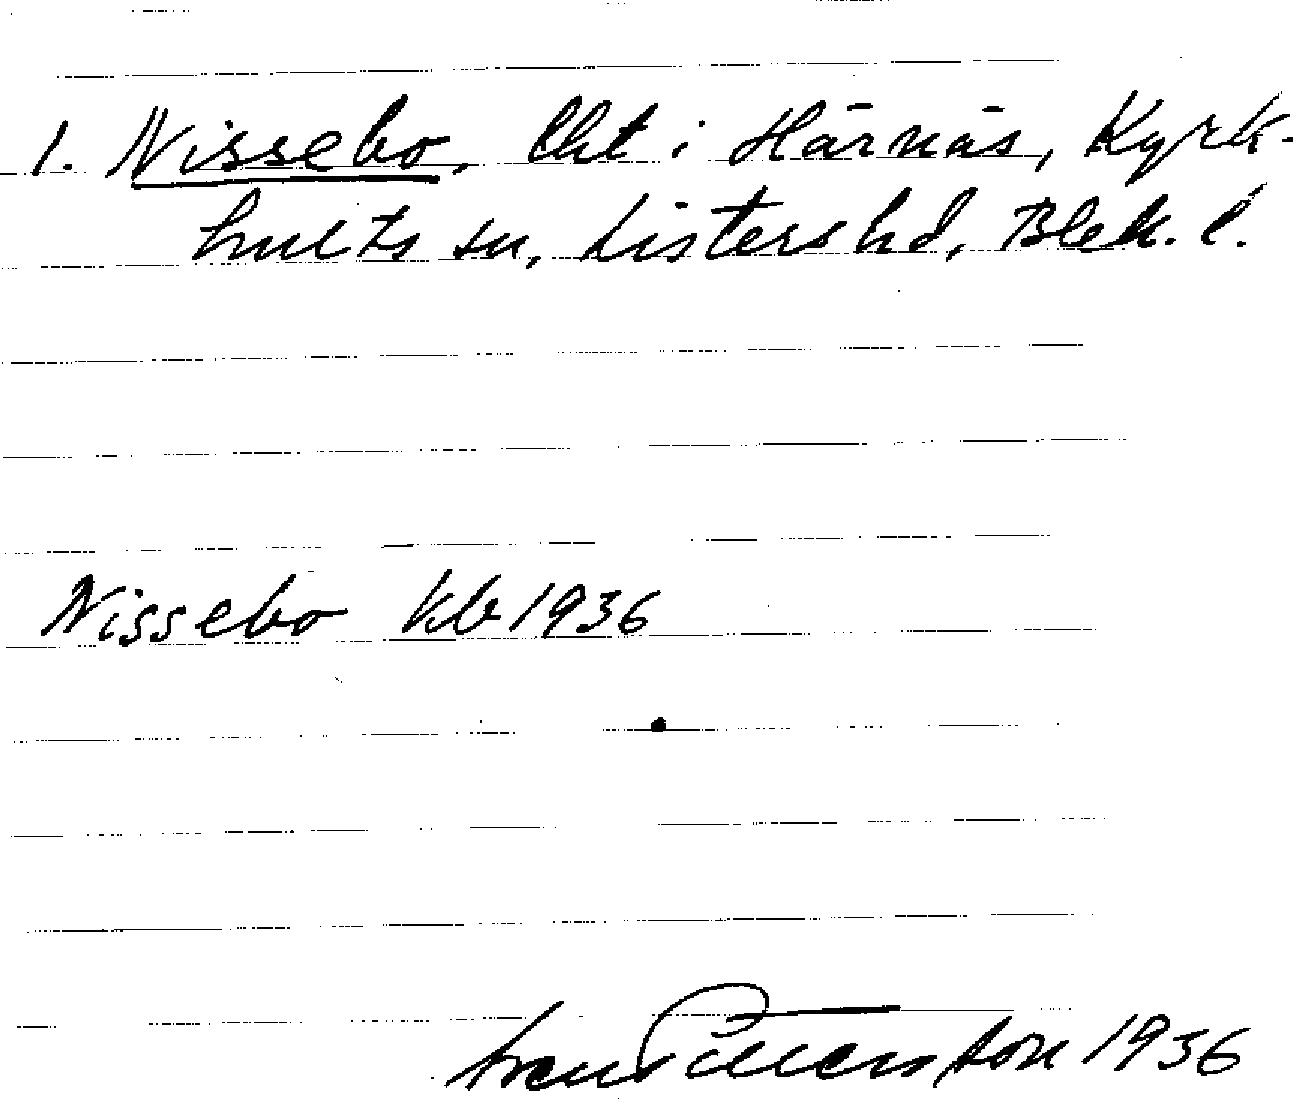 1. Nissebo, lht i Härnäs, Kyrk-
hults sn, Listers hd, Blek. l.
Nissebo kb 1936
Sven Petersson 1936